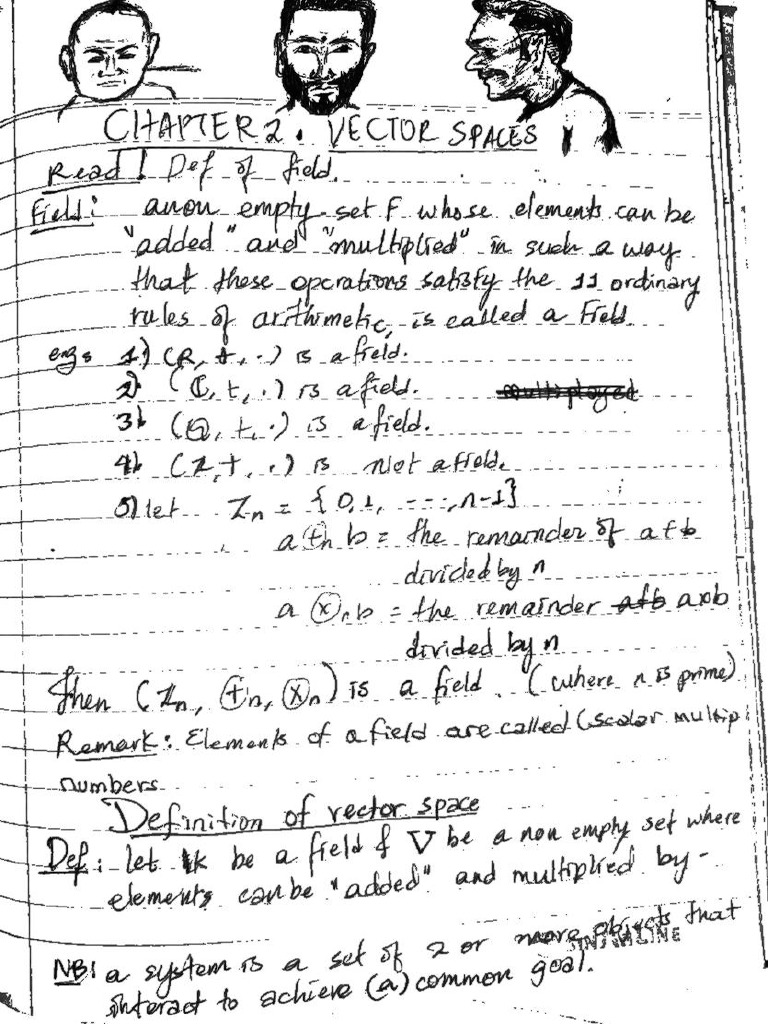 CHAPTER 2. VECTOR SPACES
Read! Def of field.
Field: a non empty set F whose elements can be
"added" and "multiplied" in such a way
that these operations satisfy the 11 ordinary
rules of arithimetic, is called a Field.
engs 1) (R, +, .) is a field.
2) (C, +, .) is a field.
3) (Q, +, .) is a field.
4) (Z, +, .) is not a field.
5) let Zn = {0, 1, ---, n-1}
a ⊕n b = the remainder of a+b
divided by n
a ⊗n b = the remainder a×b
divided by n
Then (Zn, ⊕n, ⊗n) is a field. (where n is prime)
Remark: Elements of a field are called (scalar multip
numbers
Definition of vector space
Def: let K be a field & V be a non empty set where
elements can be "added" and multiplied by-
NB! a system is a set of 2 or more objects that
interact to achieve (a) common goal.